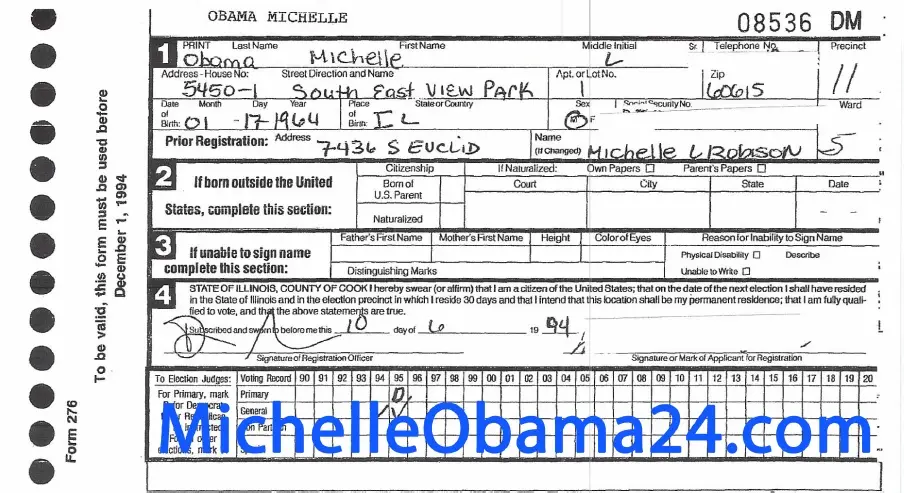 OBAMA MICHELLE
08536 DM
1 PRINT Last Name First Name Middle Initial Sr. Telephone No. Precinct
Obama Michelle L 11
Address - House No: Street Direction and Name Apt. or Lot No. Zip
5450-1 South East View Park 1 60615
Date of Birth: Month Day Year Place of Birth: State or Country Sex Social Security No. Ward
01 -17-1964 IL M F 5
Prior Registration: Address 7436 S EUCLID Name (If Changed) Michelle L Robison
2 If born outside the United States, complete this section:
Citizenship If Naturalized: Own Papers □ Parent's Papers □
Born of U.S. Parent Court City State Date
Naturalized
3 If unable to sign name complete this section:
Father's First Name Mother's First Name Height Color of Eyes Reason for Inability to Sign Name
Physical Disability □ Describe
Distinguishing Marks Unable to Write □
4 STATE OF ILLINOIS, COUNTY OF COOK I hereby swear (or affirm) that I am a citizen of the United States; that on the date of the next election I shall have resided
in the State of Illinois and in the election precinct in which I reside 30 days and that I intend that this location shall be my permanent residence; that I am fully quali-
fied to vote, and that the above statements are true.
Subscribed and sworn to before me this 10 day of 6 19 94
Signature of Registration Officer Signature or Mark of Applicant for Registration
To Election Judges: Voting Record 90 91 92 93 94 95 96 97 98 99 00 01 02 03 04 05 06 07 08 09 10 11 12 13 14 15 16 17 18 19 20
For Primary, mark Primary D
General
MichelleObama24.com
To be valid, this form must be used before
December 1, 1994
Form 276